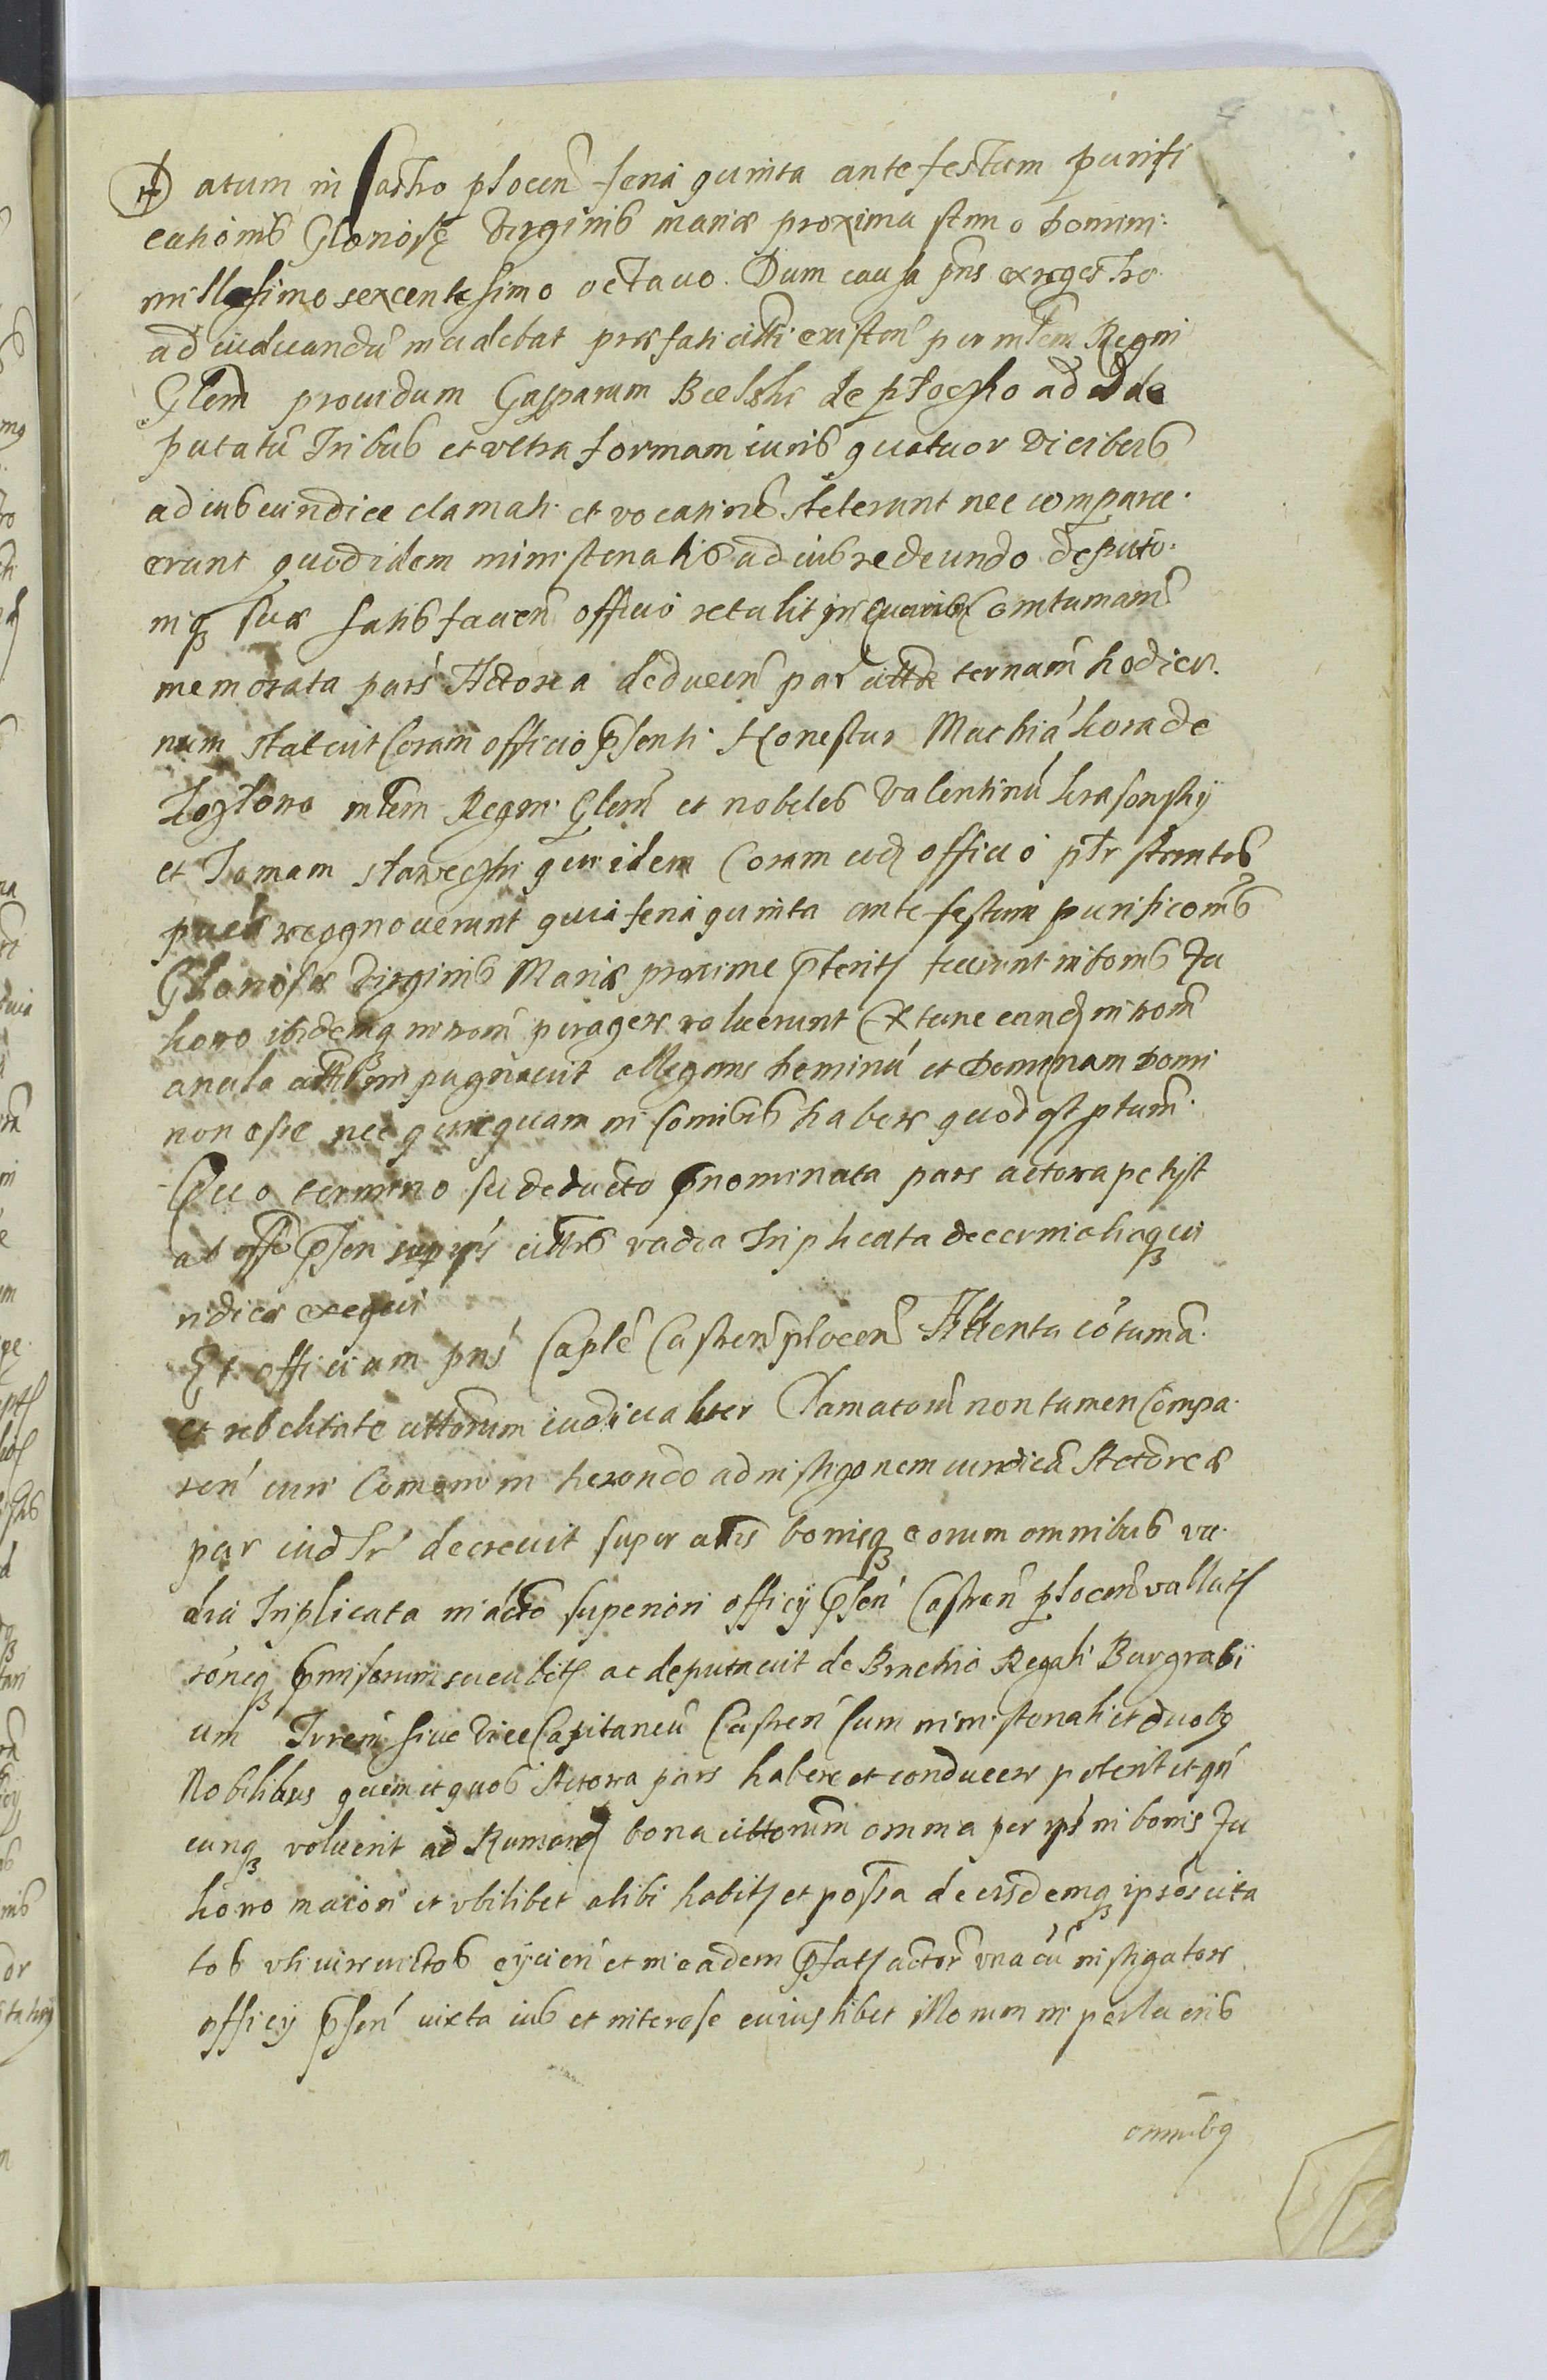 Datum in Castro plocen feria quinta ante festum purifi
cationis Gloriosę Virginis mariæ proxima Anno Domini
millesimo sexcentesimo octavo. Dum causa pns ex regestro
ad iudicandū incidebat præfati citti existen per mlem Regni
Glem providum Gasparum Bielski de plocsko ad id de
putatū Tribus et ultra formam iuris quatuor vicibus
ad ius iuridice clamati et vocati no steterunt nec comparu
erunt quod idem ministerialis ad ius redeundo deputo
niq suæ satisfacen officio retulit in quorum Contumam
memorata pars Actorea deducen par citta ternam hodier
num statuit Coram officio psenti Honestus Mathia kora de
kozlowo mlem Regni Glem et nobiles Valentinū krasowsky
et Joniam slawecski qui idem Coram eod officio ptr stantes
pueh recognoverunt quia feria quinta ante festum purificonis
Gloriosæ Virginis Mariæ proxime pterit fecerunt in bonis Zu
kowo ibidemq introm peragere voluerunt Ex tunc eand introm
ancila citti impugnavit allegans heminū et Dominam Domi
non esse nec quicquam in somibus habere quod est ptum
Quo termino su deducto pnominata pars actorea petyst
ab offo psen super ipsis cittis vadia Triplicata decerni aliaq iu
ridice exequi
Et officium pns Caplē Castren plocen Attenta cotuma
et rebelitate cittorum iudicialiter Clamatorū non tamen Compa
ren iuri Comoni in herendo ad instigonem iuridicā Actoreæ
par iud Tr decrevit super attis bonisq eorum omnibus va
dia Triplicata in acto superiori officy psen Castren plocen vallat
roneq pmisorum sucubit ac deputavit de Brachio Regali Burgrabi
um Trrem sive Vice Capitaneū Castren Cum ministeriali et duobq
Nobilibus quem et quos Actorea pars habere et conducere poterit et qn
cunq voluerit ad Rumand bona cittorum omnia per ips in bonis Zu
kowo maiori et ubilibet alibi habit et possa de eisdemq ipsos cita
tos uti iure victos eycien et in eadem pfat actorē una cū instigatore
officy psen iuxta ius et interesse cuius libet illorum in perlucris
omnibq